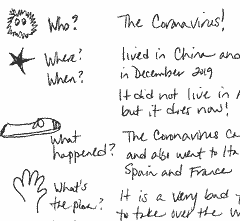 Who? The Coronavirus!
Where? lived in China and
When? in December 2019
It did not live in
but it does now!
What happened? The Coronavirus
and also went to
Spain and France
What's the plan? It is a very bad
to take over the